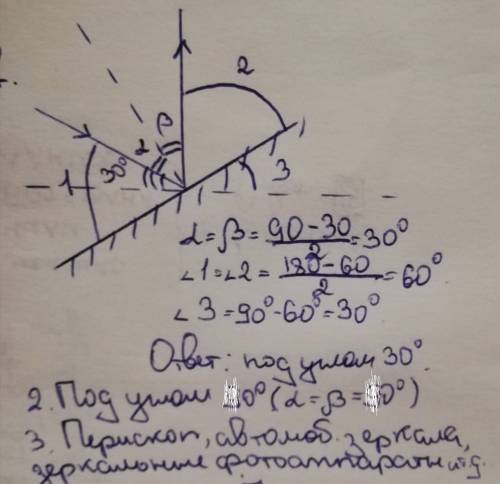 2
β
α
30°
1
3
α = β = 90-30/2 = 30°
∠1=∠2 = 180-60/2 = 60°
∠3 = 90°-60° = 30°
Ответ: под углом 30°.
2. Под углом 0° (α=β= 0°)
3. Перископ, автомоб. зеркала,
зеркальные фотоаппараты и т.д.